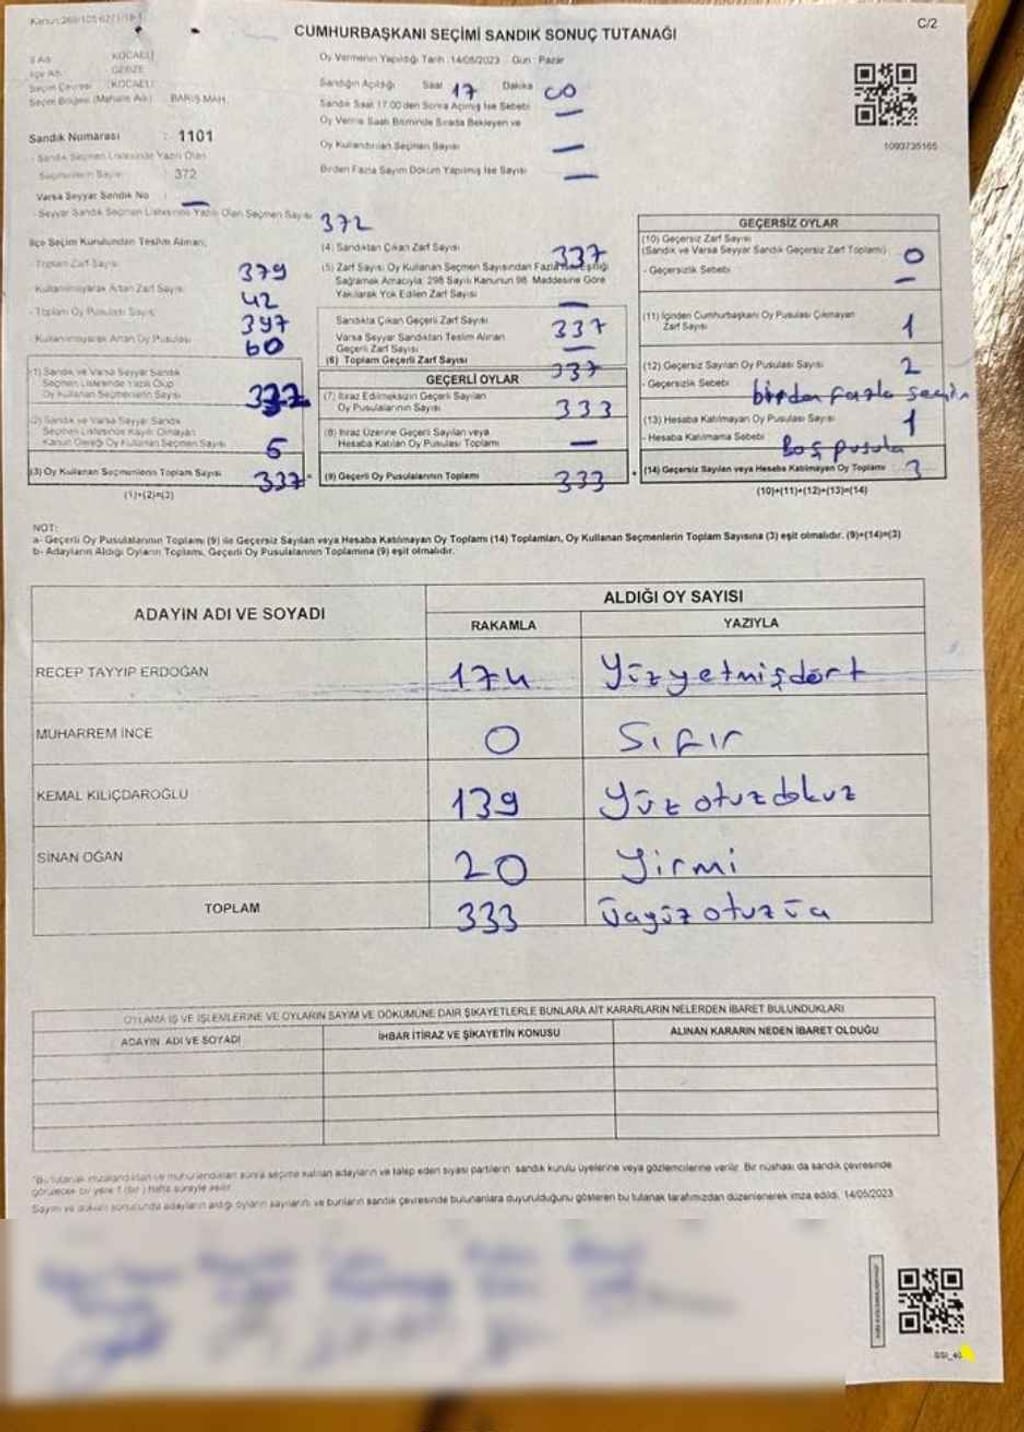 Kanun:298/105 627/1/18-1
C/2
CUMHURBAŞKANI SEÇİMİ SANDIK SONUÇ TUTANAĞI
İl Adı : KOCAELİ
İlçe Adı : GEBZE
Seçim Çevresi : (KOCAELİ
Seçim Bölgesi (Mahalle Adı) : BARIŞ MAH.
Sandık Numarası : 1101
- Sandık Seçmen Listesinde Yazılı Olan
Seçmenlerin Sayısı : 372
Varsa Seyyar Sandık No : —
- Seyyar Sandık Seçmen Listesinde Yazılı Olan Seçmen Sayısı 372
Oy Vermenin Yapıldığı Tarih: 14/05/2023 Gün: Pazar
Sandığın Açıldığı Saat 17 Dakika 00
Sandık Saat 17.00'den Sonra Açılmış İse Sebebi —
Oy Verme Saati Bitiminde Sırada Bekleyen ve
Oy Kullandırılan Seçmen Sayısı —
Birden Fazla Sayım Döküm Yapılmış İse Sayısı —
1093735165
İlçe Seçim Kurulundan Teslim Alınan;
- Toplam Zarf Sayısı 379
- Kullanılmayarak Artan Zarf Sayısı 42
- Toplam Oy Pusulası Sayısı 397
- Kullanılmayarak Artan Oy Pusulası 60
(1) Sandık ve Varsa Seyyar Sandık
Seçmen Listesinde Yazılı Olup
Oy Kullanan Seçmenlerin Sayısı
(2) Sandık ve Varsa Seyyar Sandık
Seçmen Listesinde Kayıtlı Olmayan
Kanun Gereği Oy Kullanan Seçmen Sayısı 5
(3) Oy Kullanan Seçmenlerin Toplam Sayısı 337
(1)+(2)=(3)
(4) Sandıktan Çıkan Zarf Sayısı 337
(5) Zarf Sayısı Oy Kullanan Seçmen Sayısından Fazla İse Eşitliği
Sağlamak Amacıyla; 298 Sayılı Kanunun 98. Maddesine Göre
Yakılarak Yok Edilen Zarf Sayısı —
Sandıkta Çıkan Geçerli Zarf Sayısı 337
Varsa Seyyar Sandıktan Teslim Alınan
Geçerli Zarf Sayısı —
(6) Toplam Geçerli Zarf Sayısı 337
GEÇERLİ OYLAR
(7) İtiraz Edilmeksizin Geçerli Sayılan
Oy Pusulalarının Sayısı 333
(8) İtiraz Üzerine Geçerli Sayılan veya
Hesaba Katılan Oy Pusulası Toplamı —
(9) Geçerli Oy Pusulalarının Toplamı 333
GEÇERSİZ OYLAR
(10) Geçersiz Zarf Sayısı
(Sandık ve Varsa Seyyar Sandık Geçersiz Zarf Toplamı) 0
- Geçersizlik Sebebi —
(11) İçinden Cumhurbaşkanı Oy Pusulası Çıkmayan
Zarf Sayısı 1
(12) Geçersiz Sayılan Oy Pusulası Sayısı 2
- Geçersizlik Sebebi birden fazla seçim
(13) Hesaba Katılmayan Oy Pusulası Sayısı 1
- Hesaba Katılmama Sebebi Boş pusula
(14) Geçersiz Sayılan veya Hesaba Katılmayan Oy Toplamı 3
(10)+(11)+(12)+(13)=(14)
NOT:
a- Geçerli Oy Pusulalarının Toplamı (9) ile Geçersiz Sayılan veya Hesaba Katılmayan Oy Toplamı (14) Toplamları, Oy Kullanan Seçmenlerin Toplam Sayısına (3) eşit olmalıdır. (9)+(14)=(3)
b- Adayların Aldığı Oyların Toplamı, Geçerli Oy Pusulalarının Toplamına (9) eşit olmalıdır.
ADAYIN ADI VE SOYADI
ALDIĞI OY SAYISI
RAKAMLA YAZIYLA
RECEP TAYYİP ERDOĞAN 174 Yüzyetmişdört
MUHARREM İNCE 0 Sıfır
KEMAL KILIÇDAROĞLU 139 Yüzotuzdokuz
SİNAN OĞAN 20 Yirmi
TOPLAM 333 Üçyüzotuzüç
OYLAMA İŞ VE İŞLEMLERİNE VE OYLARIN SAYIM VE DÖKÜMÜNE DAİR ŞİKAYETLERLE BUNLARA AİT KARARLARIN NELERDEN İBARET BULUNDUKLARI
ADAYIN ADI VE SOYADI İHBAR İTİRAZ VE ŞİKAYETİN KONUSU ALINAN KARARIN NEDEN İBARET OLDUĞU
"Bu tutanak imzalandıktan ve mühürlendikten sonra seçime katılan adayların ve talep eden siyasi partilerin sandık kurulu üyelerine veya gözlemcilerine verilir. Bir nüshası da sandık çevresinde
görülecek bir yere 1 (bir) hafta süreyle asılır.
Sayım ve döküm sonucunda adayların aldığı oyların sayılarını ve bunların sandık çevresinde bulunanlara duyurulduğunu gösteren bu tutanak tarafımızdan düzenlenerek imza edildi. 14/05/2023